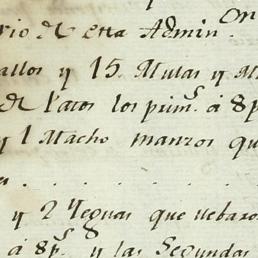 on
rio de esta Admin.
allos y 15. Mulas y M
de Patos los prim.s á 8p
y 1 Macho manzos qu
s . . . . . .
y 2 Yeguas que llebaro
á 8p.s y las Segundas